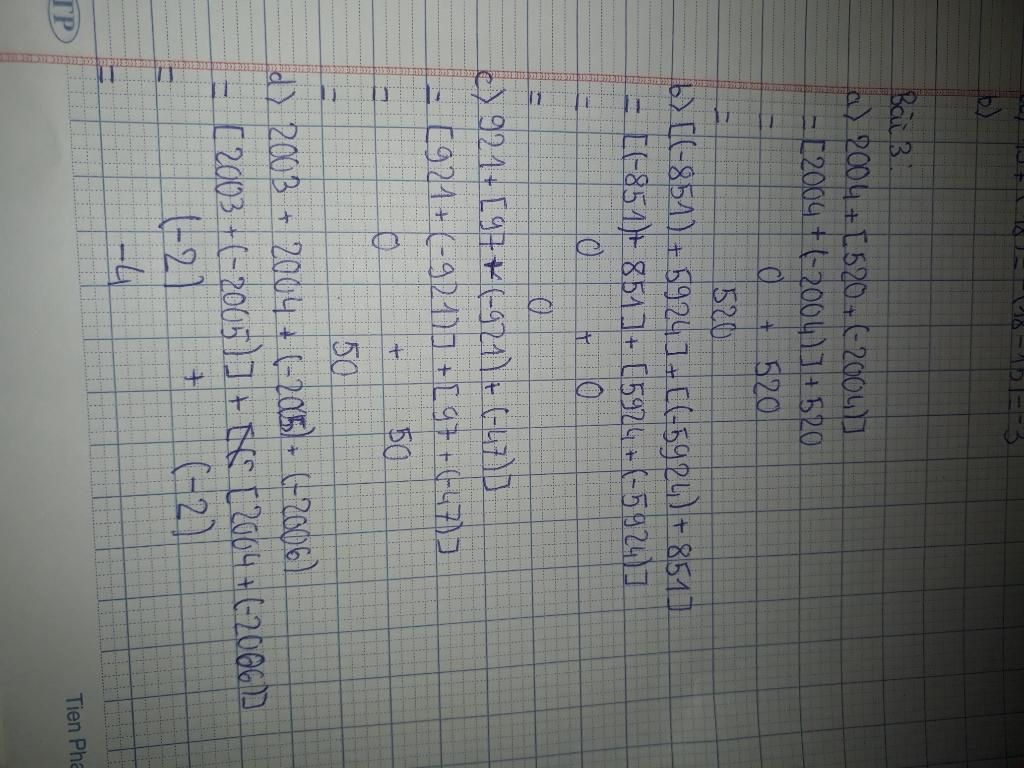 b)
Bài 3:
a) 2004 + [520 + (-2004)]
= [2004 + (-2004)] + 520
= 0 + 520
= 520
b) [(-851) + 5924] + [(-5924) + 851]
= [(-851) + 851] + [5924 + (-5924)]
= 0 + 0
= 0
c) 921 + [97 + (-921) + (-47)]
= [921 + (-921)] + [97 + (-47)]
= 0 + 50
= 50
d) 2003 + 2004 + (-2005) + (-2006)
= [2003 + (-2005)] + [2004 + (-2006)]
= (-2) + (-2)
= -4
TP
Tien